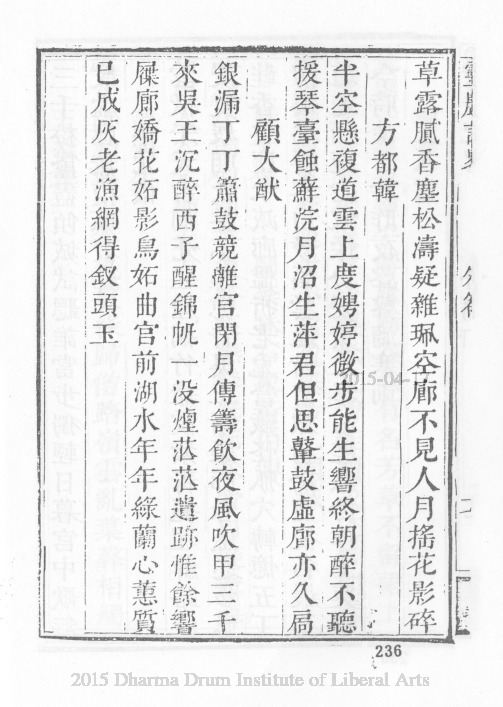 草露膩香塵松濤疑雜珮空廊不見人月搖花影碎
方都韓
半空懸複道雲上度娉婷微步能生響終朝醉不聽
援琴臺蝕蘚浣月沼生萍君但思鼙鼓虛廊亦久扃
顧大猷
銀漏丁丁簫鼓競離宮閉月傳籌飲夜風吹甲三千
來吳王沉醉西子醒錦帆 没煙茫茫遺跡惟餘響
屧廊嬌花妬影鳥妬曲宮前湖水年年綠蘭心蕙質
已成灰老漁網得釵頭玉
236
2015-04-1
2015 Dharma Drum Institute of Liberal Arts